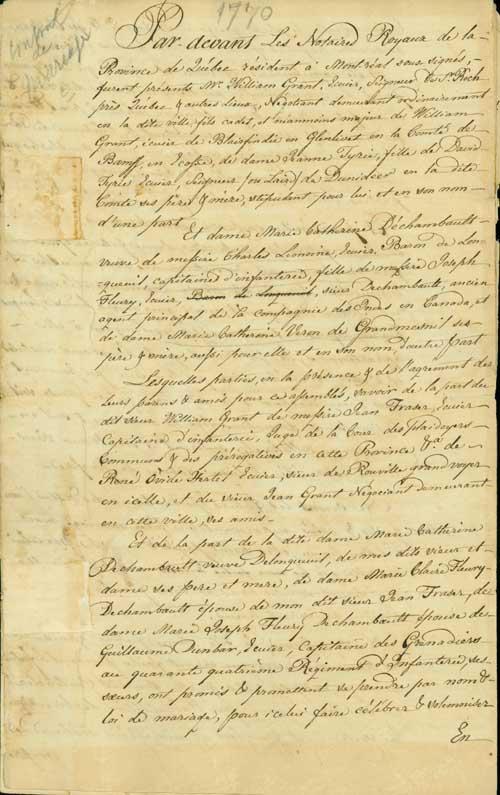 1770
contrat
de
mariage
Par-devant Les Notaires Royaux de la
Province de Québec résident à Montréal sous signés,
furent présents Mr. William Grant, Ecuier, Seigneur de St. Roch
près Québec & autres lieux, Négotiant demeurant ordinairement
en la dite ville, fils cadet, et néanmoins majeur de William
Grant, écuier de Blairfindie en Glenlivet en la Comté de
Bamff, en Ecosse, de dame Jeanne Tyrie, fille de David
Tyrie Ecuier, Seigneur (ou Laird) de Dunideer en la dite
Comté ses père & mère, stipulant pour lui et en son nom
d'une part
Et dame Marie Catherine Déchambault
veuve de messire Charles Lemoine, Ecuier, Baron de Lon-
-gueuil, capitaine d'infanterie, fille de messire Joseph
Fleury, Ecuier, Baron de Longueuil, sieur Dechambault, ancien
agent principal de la Compagnie des Indes en Canada, et
de dame Marie Catherine Veron de Grandmesnil ses
père & mère, aussi pour elle et en son nom, d'autre part
Lesquelles parties, en la présence & de l'agrément des
leurs parens & amis pour ce assemblés, savoir de la part du
dit sieur William Grant de messire Jean Fraser, Ecuier
Capitaine d'infanterie, Juge de la Cour des plaidoyers
Communs & des prérogatives en cette Province &a. de
René Ovide Hertel Ecuier, sieur de Rouville grand voyer
en icelle, et du sieur Jean Grant Négociant demeurant
en cette ville, ses amis-
Et de la part de la dite dame Marie Catherine
Dechambault veuve Delongueuil, de mes dits sieur et
dame ses père et mère, de dame Marie Claire Fleury-
Dechambault épouse de mon dit sieur Jean Fraser, de
dame Marie Joseph Fleury Dechambault épouse de
Guillaume Dunbar, Ecuier, Capitaine des Grenadiers
au quarante quatrième Régiment d'Infanterie ses
sœurs, ont promis & promettent se prendre par nom &
loi de mariage, pour icelui faire célébrer & solemniser
En